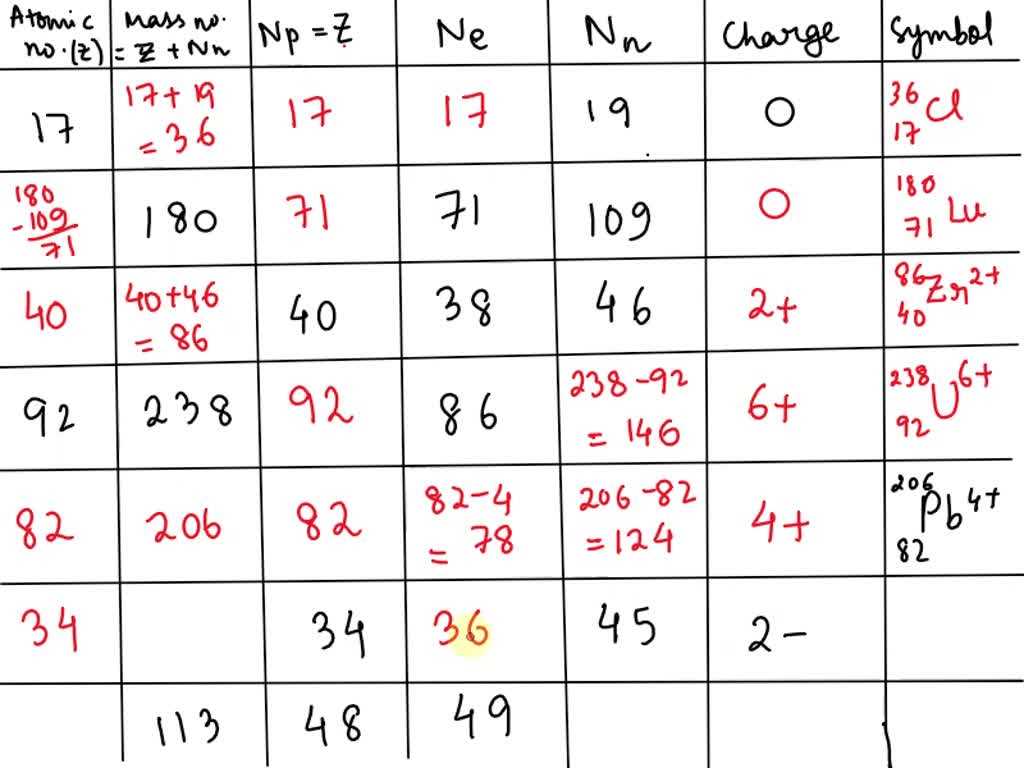 Atomic no.(Z) Mass no. = Z + Nn Np = Z Ne Nn Charge Symbol
17 17 + 19 = 36 17 17 19 0 36 17 Cl
180 - 109 / 71 180 71 71 109 0 180 71 Lu
40 40+46 = 86 40 38 46 2+ 86 40 Zr 2+
92 238 92 86 238 - 92 = 146 6+ 238 92 U 6+
82 206 82 82 - 4 = 78 206 - 82 = 124 4+ 206 82 Pb 4+
34 34 36 45 2 -
113 48 49